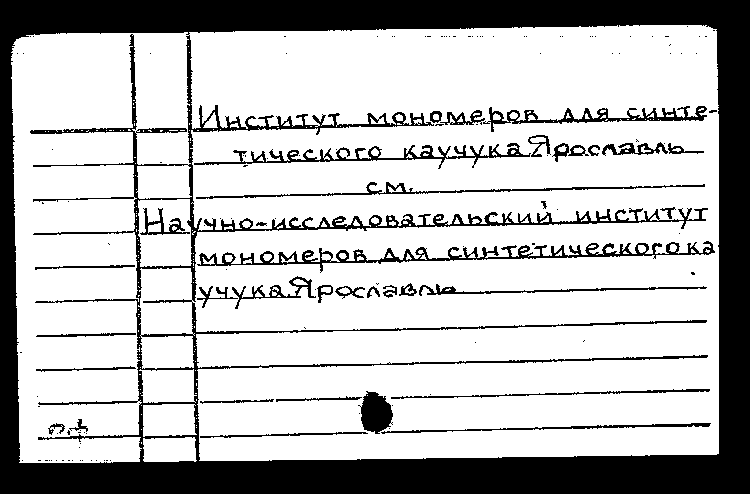 Институт мономеров для синте-
тического каучука. Ярославль
см.
Научно-исследовательский институт
мономеров для синтетического ка
учука. Ярославль